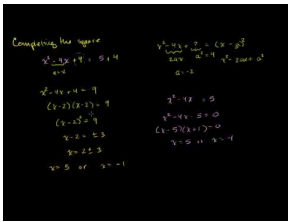 Completing the square
x² - 4x + 4 = 5 + 4
a=-2
x² - 4x + 4 = 9
(x-2)(x-2) = 9
(x-2)² = 9
x - 2 = ± 3
x = 2 ± 3
x = 5 or x = -1
x² - 4x + ? = (x - a)²
2ax a² = 4 x² - 2ax + a²
a = -2
x² - 4x = 5
x² - 4x - 5 = 0
(x-5)(x+1) = 0